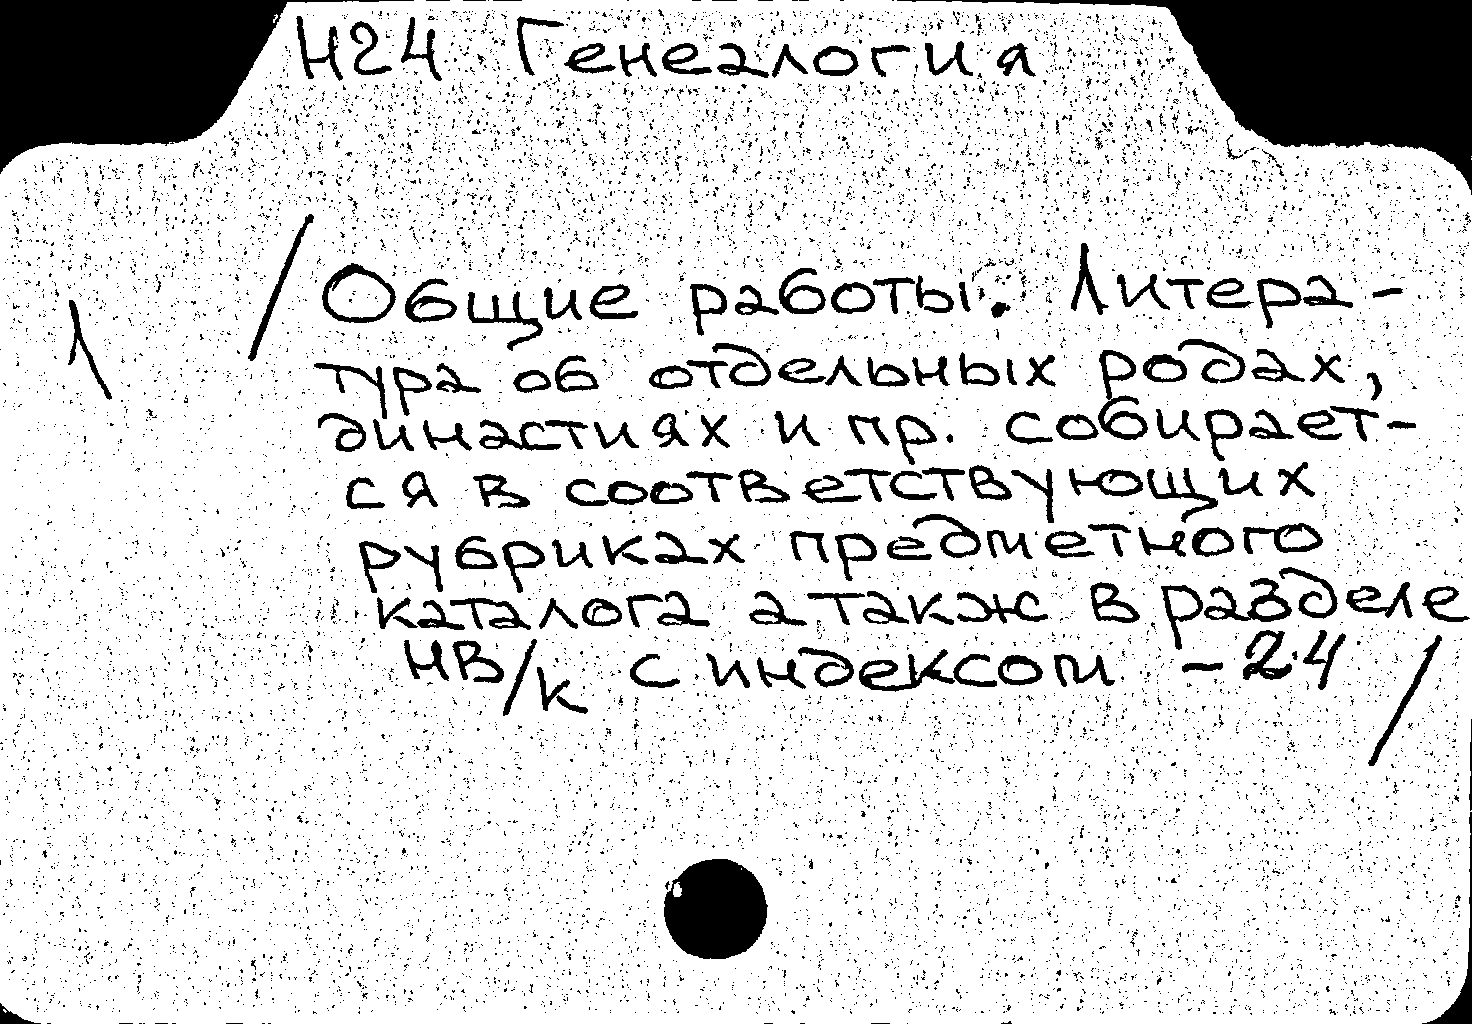 Н24 Генеалогия
/Общие работы. Литера-
тура об отдельных родах,
династиях и пр. собирает-
ся в соответствующих
рубриках предметного
каталога а также в разделе
НВ/к с индексом -24/